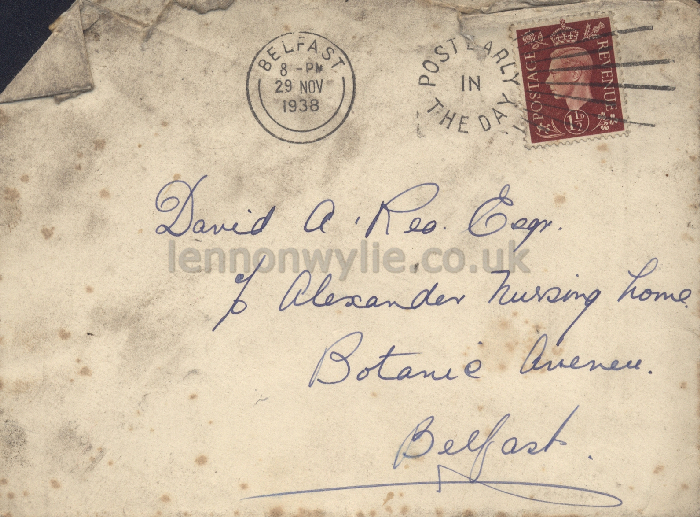 BELFAST
8 - PM
29 NOV
1938
POST EARLY
IN
THE DAY
POSTAGE
REVENUE
1½D
David A. Reo. Esqr.
lennonwylie.co.uk
c/o Alexander Nursing home
Botanic Aveneu.
Belfast.